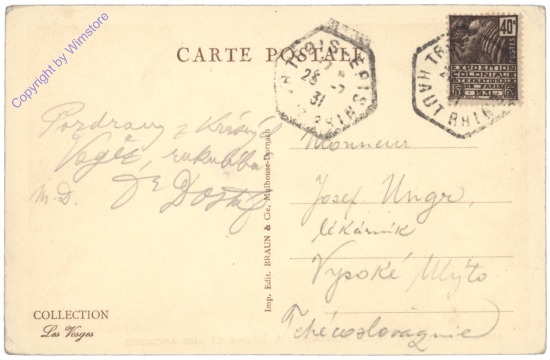 Copyright by Winstore
CARTE POSTALE
TROIS EPIS
28 - 7
31
HAUT RHIN
40c
EXPOSITION
COLONIALE
INTERNATIONALE
PARIS
1931
HAUT RHIN
Pozdravy z krásných
Vogéz, rukulíbá
M-D. Dr Dostál
Monsieur
Josef Ungr,
lékárník
Vysoké Mýto
Tchécoslovaquie
Imp. Edit. BRAUN & Cie, Mulhouse-Dornach
COLLECTION
Les Vosges